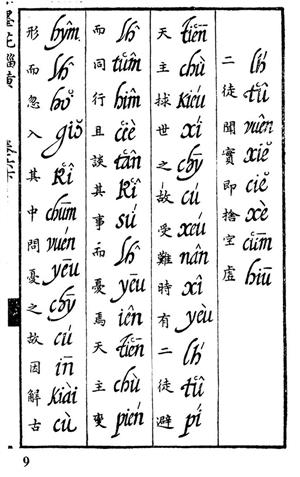 二徒聞實即捨空虛
lh́ t̔û vuên xiĕ ciĕ xè c̔ūm hiū
天主捄世之故受難時有二徒避
t̔iēn chù kiéu xí chȳ cú xeú nân xî yèu lh́ t̔û pí
而同行且談其事而憂焉天主變
lĥ t̔ûm hîm c̔iè t̔ân k̔î sú lĥ yēu iên t̔iēn chù pién
形而忽入其中問憂之故因解古
hŷm lĥ hŏ giŏ k̔î chūm vuén yēu chȳ cú īn kiài cù
墨苑緇黃
9